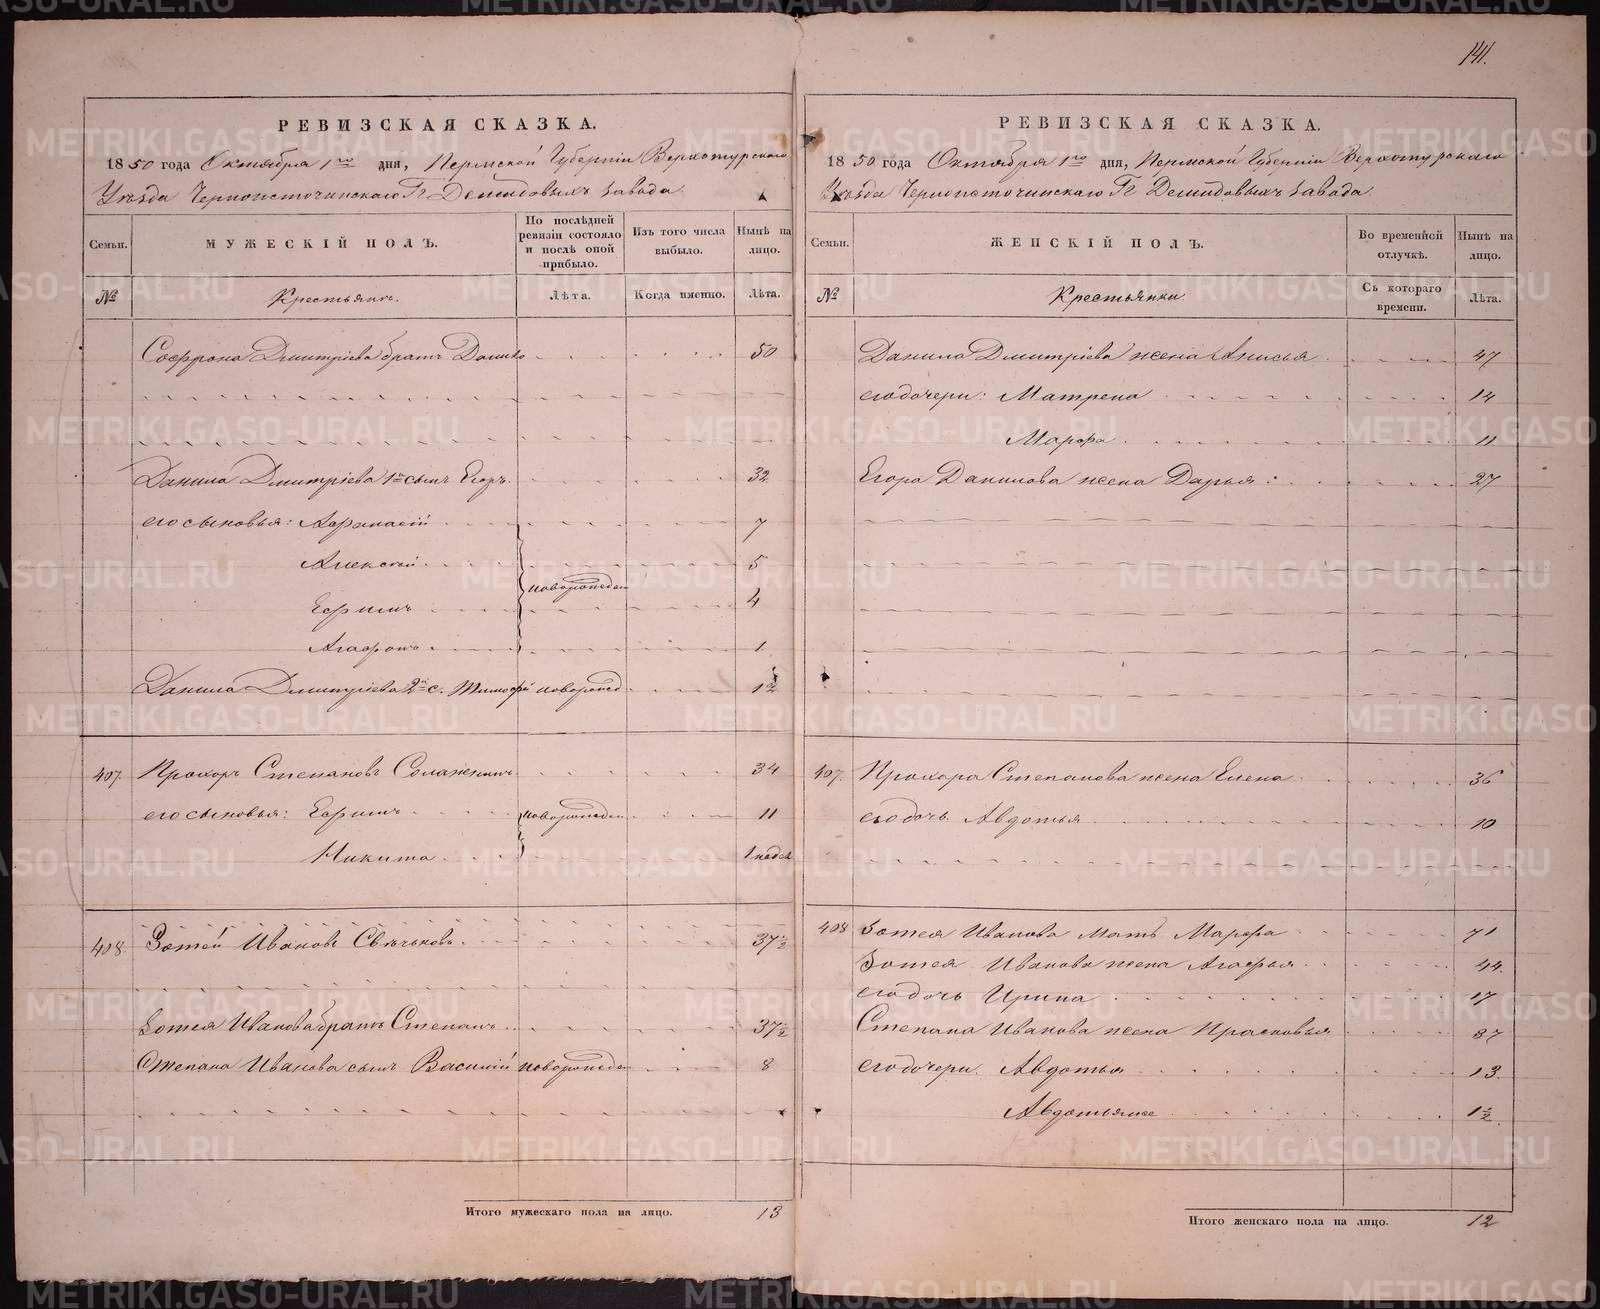 141.
РЕВИЗСКАЯ СКАЗКА.
1850 года Октября 1го дня, Пермской Губерніи Верхотурскаго
Уѣзда Черноисточинскаго Гг Демидовыхъ завода.
Семьи. МУЖЕСКІЙ ПОЛЪ. По послѣдней ревизіи состояло и послѣ оной прибыло. Изъ того числа выбыло. Нынѣ на лицо.
№ Крестьянъ. Лѣта. Когда именно. Лѣта.
Софрона Дмитріева братъ Данило 50
Данила Дмитріева 1й сынъ Егоръ 32
его сыновья: Афанасій 7
Алексѣй 5
новорожден
Ефимъ 4
Агафонъ 1
Данила Дмитріева 2й с. Тимофѣй новорожд 1½
407. Прохоръ Степановъ 34
его сыновья: Ефимъ новорожден 11
Никита 1 недел
408. Зотей Ивановъ Свѣчьковъ 37½
Зотея Иванова братъ Степанъ 37½
Степана Иванова сынъ Василій новорожден 8
Итого мужескаго пола на лицо. 13
РЕВИЗСКАЯ СКАЗКА.
1850 года Октября 1го дня, Пермской Губерніи Верхотурскаго
Уѣзда Черноисточинскаго Гг Демидовыхъ завода
Семьи. ЖЕНСКІЙ ПОЛЪ. Во временной отлучкѣ. Нынѣ на лицо.
№ Крестьянки. Съ котораго времени. Лѣта.
Данила Дмитріева жена Анисья 47
его дочери: Матрена 14
Марфа 11
Егора Данилова жена Дарья 27
407. Прохора Степанова жена Елена 36
его дочь Авдотья 10
408 Зотея Иванова мать Марфа 71
Зотея Иванова жена Агафья 44.
его дочь Ирина 17
Степана Иванова жена Прасковья 37
его дочери. Авдотья 13.
Авдотьяже 1½
Итого женскаго пола на лицо. 12
METRIKI.GASO-URAL.RU